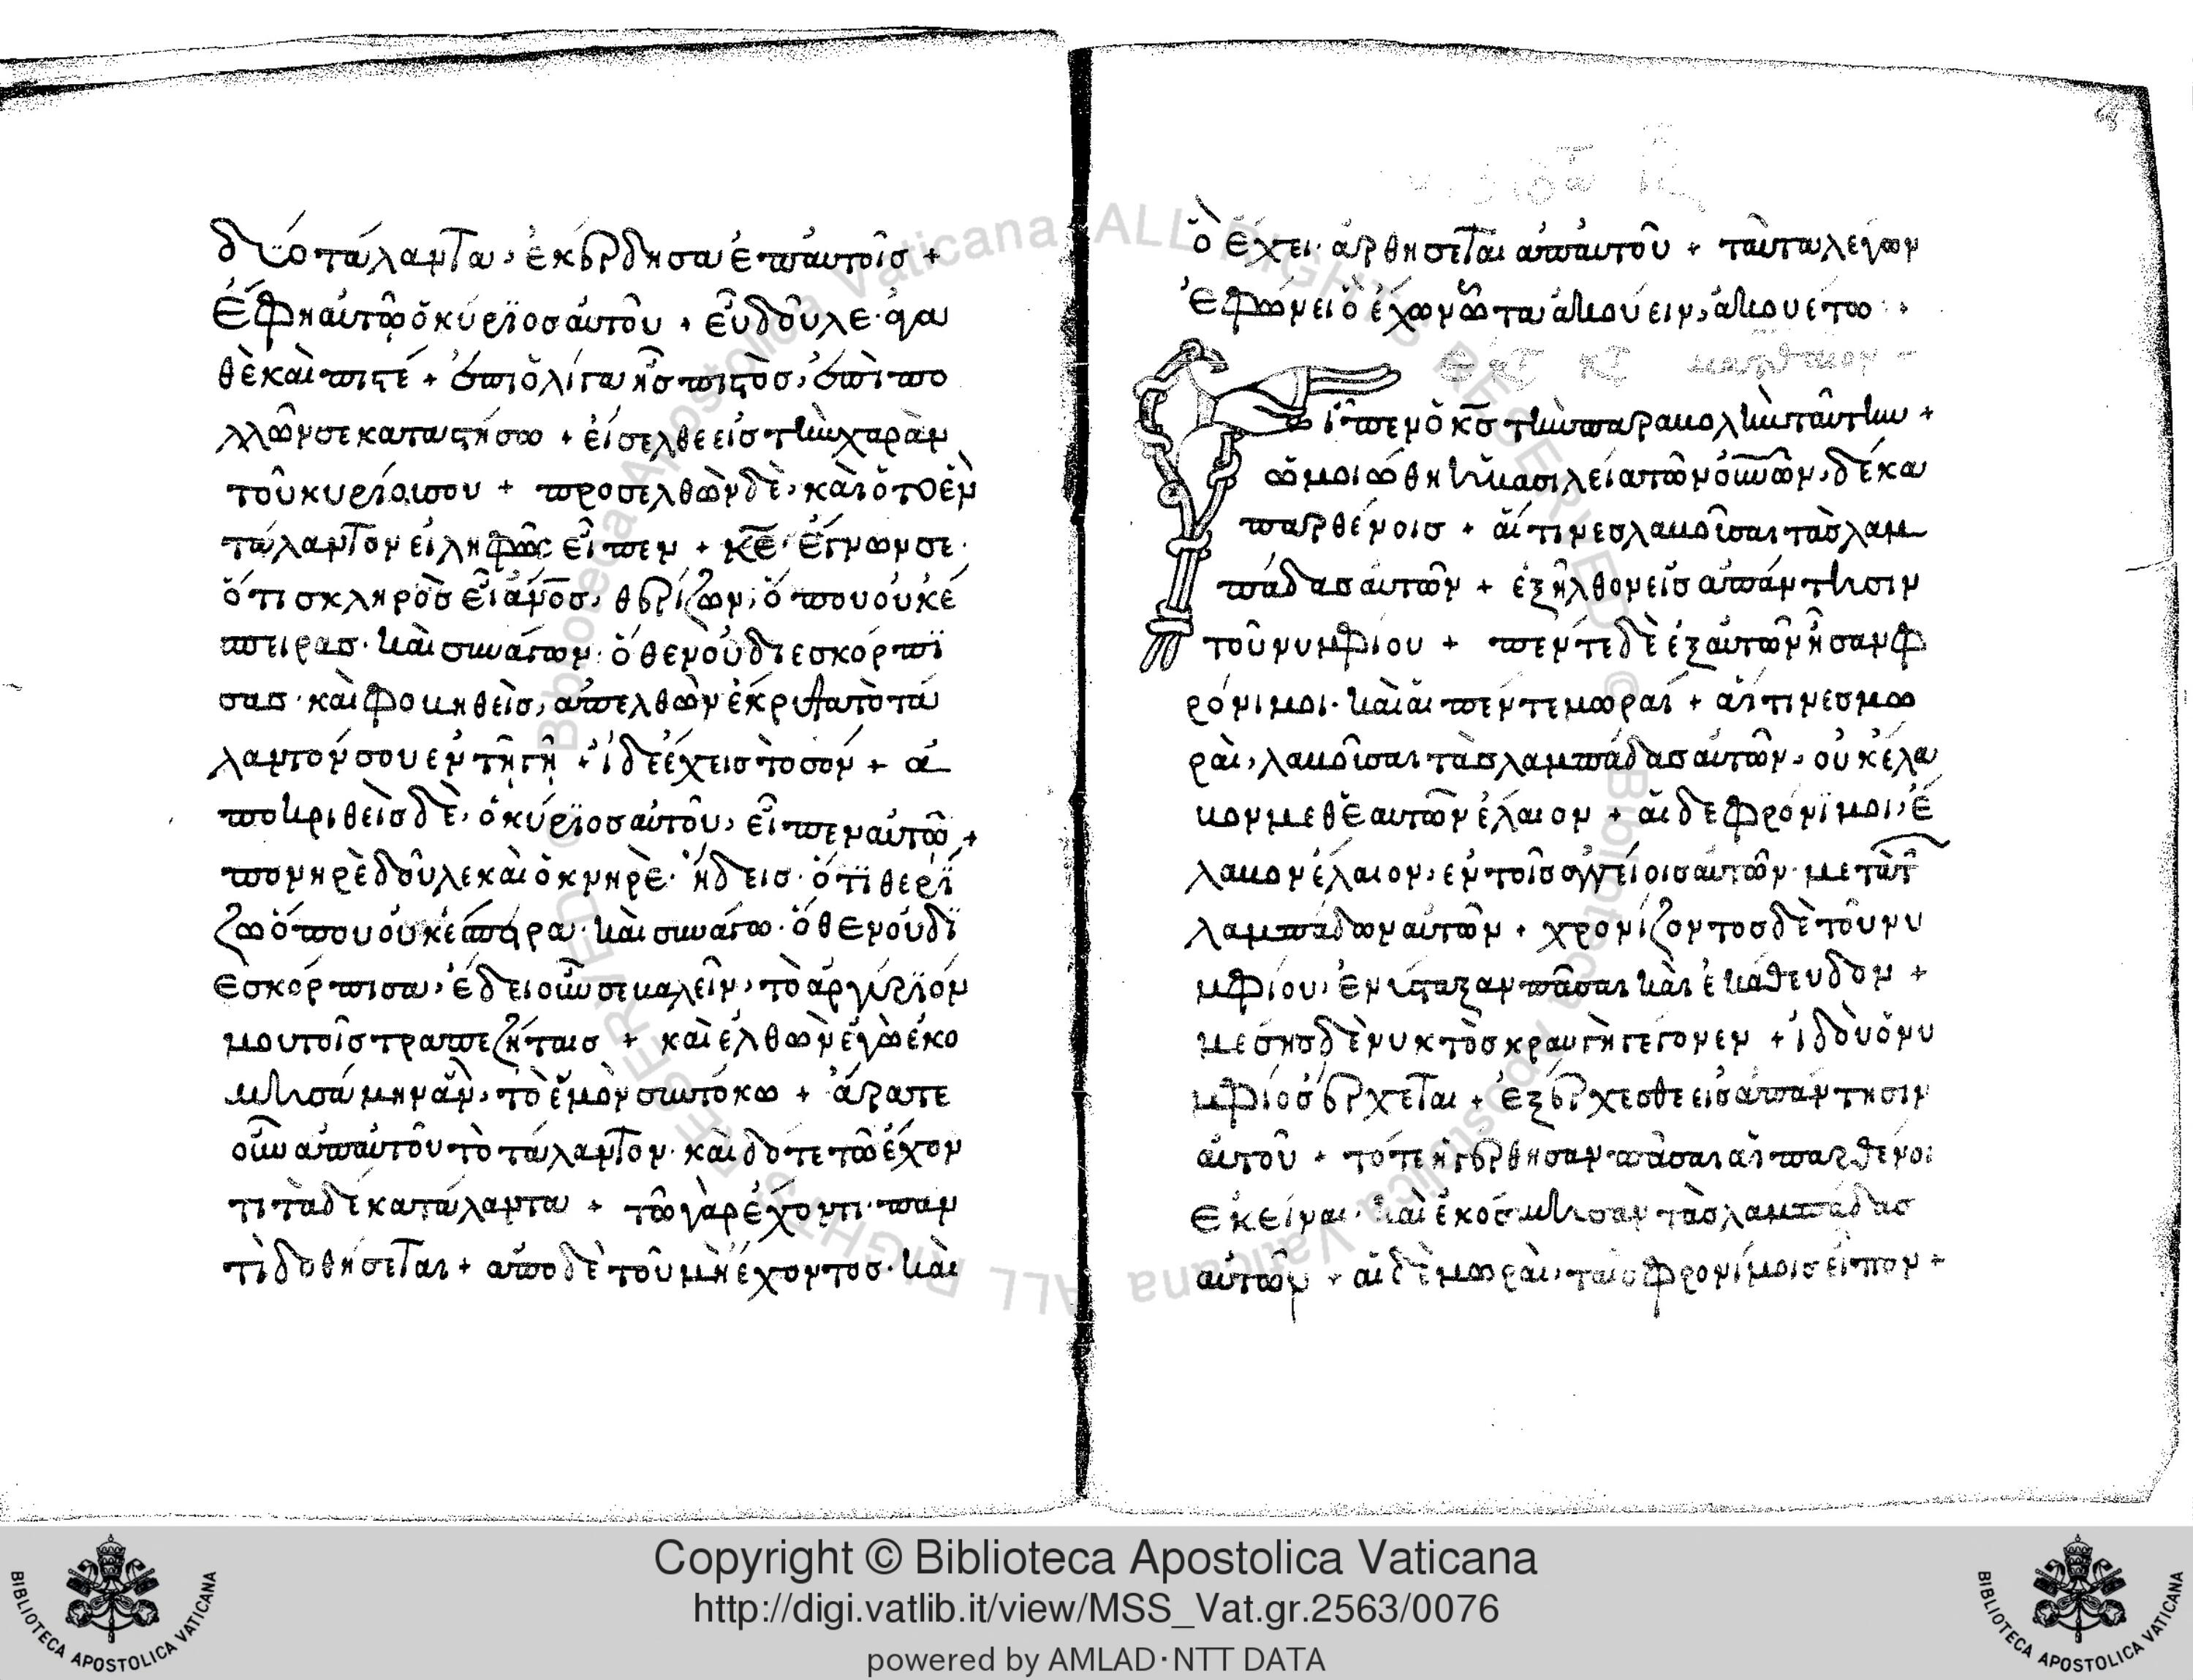 δύο τάλαντα, ἐκέρδησα ἐπ' αὐτοῖς +
ἔφη αὐτῷ ὁ κύριος αὐτοῦ + εὖ δοῦλε ἀγα
θὲ καὶ πιστέ + ἐπὶ ὀλίγα ἦς πιστός, ἐπὶ πο
λλῶν σε καταστήσω + εἴσελθε εἰς τὴν χαρὰν
τοῦ κυρίου σου + προσελθὼν δὲ, καὶ ὁ τὸ ἓν
τάλαντον εἰληφὼς εἶπεν + κε ἔγνων σε
ὅτι σκληρὸς εἶ ἀνος, θερίζων, ὅπου οὐκ ἔ
σπειρας. καὶ συνάγων ὅθεν οὐ διεσκόρπι
σας. καὶ φοβηθεὶς, ἀπελθὼν ἔκρυψα τὸ τά
λαντόν σου ἐν τῇ γῇ + ἴδε ἔχεις τὸ σόν + ἀ
ποκριθεὶς δὲ, ὁ κύριος αὐτοῦ, εἶπεν αὐτῷ +
πονηρὲ δοῦλε καὶ ὀκνηρὲ. ᾔδεις. ὅτι θερί
ζω ὅπου οὐκ ἔσπειρα. καὶ συνάγω. ὅθεν οὐ δι
εσκόρπισα, ἔδει οὖν σε βαλεῖν, τὸ ἀργύριόν
μου τοῖς τραπεζήταις + καὶ ἐλθὼν ἐγὼ ἐκο
μησάμην ἂν, τὸ ἐμὸν σὺν τόκω + ἄρατε
οὖν ἀπ' αὐτοῦ τὸ τάλαντον. καὶ δότε τῷ ἔχον
τι τὰ δέκα τάλαντα + τῷ γὰρ ἔχοντι. παν
τὶ δοθήσεται + ἀπὸ δὲ τοῦ μὴ ἔχοντος. καὶ
ὃ ἔχει. ἀρθήσεται ἀπ' αὐτοῦ + ταῦτα λέγων
ἐφώνει ὁ ἔχων ὦτα ἀκούειν, ἀκουέτω
ἶπεν ὁ κς τὴν παραβολὴν ταύτην +
ὡμοιώθη ἡ βασιλεία τῶν οὐνῶν, δέκα
παρθένοις + αἵτινες λαβοῦσαι τὰς λαμ
πάδας αὐτῶν + ἐξῆλθον εἰς ἀπάντησιν
τοῦ νυμφίου + πέντε δὲ ἐξ αὐτῶν ἦσαν φ
ρόνιμοι. καὶ αἱ πέντε μωραί + αἵτινες μω
ραὶ, λαβοῦσαι τὰς λαμπάδας αὐτῶν, οὐκ ἔλα
βον μεθ' ἑαυτῶν ἔλαιον + αἱ δὲ φρόνιμοι, ἔ
λαβον ἔλαιον, ἐν τοῖς ἀγγείοις αὐτῶν. μετὰ τ
λαμπάδων αὐτῶν + χρονίζοντος δὲ τοῦ νυ
μφίου, ἐνύσταξαν πᾶσαι καὶ ἐκάθευδον +
μέσης δὲ νυκτὸς κραυγὴ γέγονεν + ἰδοὺ ὁ νυ
μφίος ἔρχεται + ἐξέρχεσθε εἰς ἀπάντησιν
αὐτοῦ + τότε ἠγέρθησαν πᾶσαι αἱ παρθένοι
ἐκεῖναι. καὶ ἐκόσμησαν τὰς λαμπάδας
αὐτῶν + αἱ δὲ μωραὶ, ταῖς φρονίμοις εἶπον +
Copyright © Biblioteca Apostolica Vaticana
http://digi.vatlib.it/view/MSS_Vat.gr.2563/0076
powered by AMLAD·NTT DATA
BIBLIOTECA APOSTOLICA VATICANA
BIBLIOTECA APOSTOLICA VATICANA